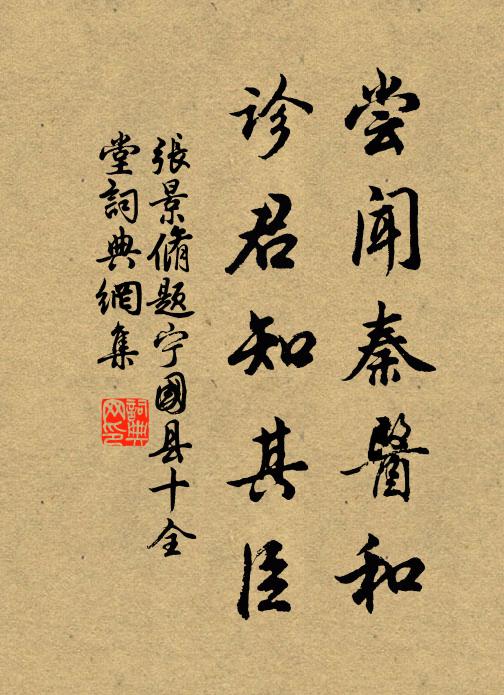 尝闻秦醫和
诊君知其臣
張景脩题宁國县十全
堂詞典網集
詞典网印